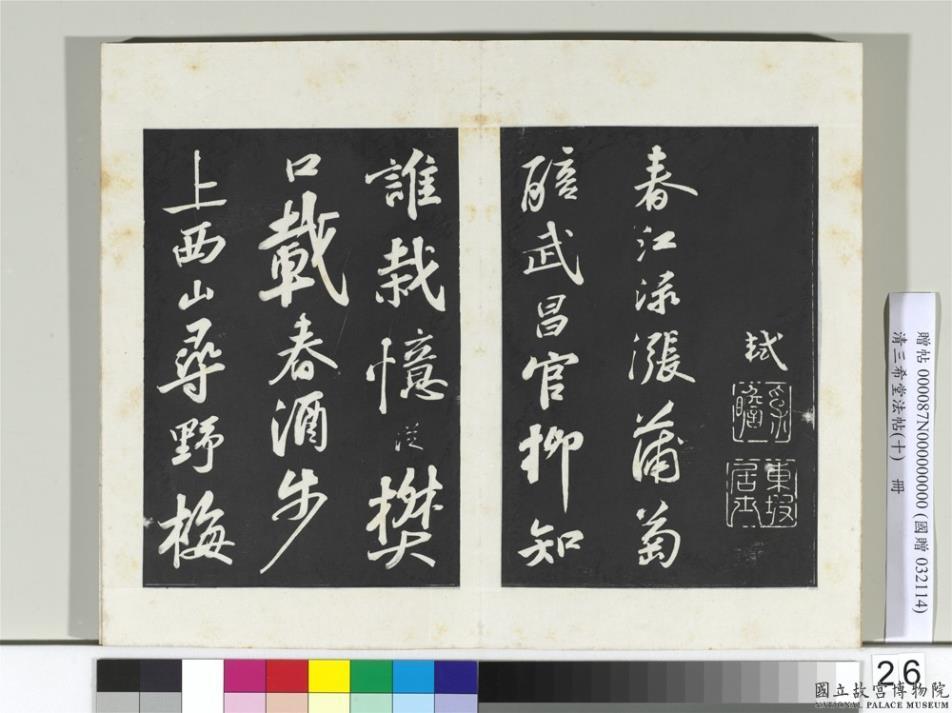 軾
東坡居士
春江淥漲蒲萄
醅武昌官柳知
誰栽憶從樊
口載春酒步
上西山尋野梅
贈帖 000087N000000000 (國贈 032114)
清三希堂法帖(十) 冊
26
國立故宮博物院
NATIONAL PALACE MUSEUM